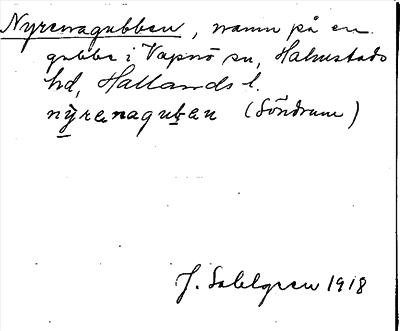 Nyrenagubben, namn på en
gubbe i Vapnö sn, Halmstads
hd, Hallands l.
nyrenaguban (Söndrum)
J. Sahlgren 1918